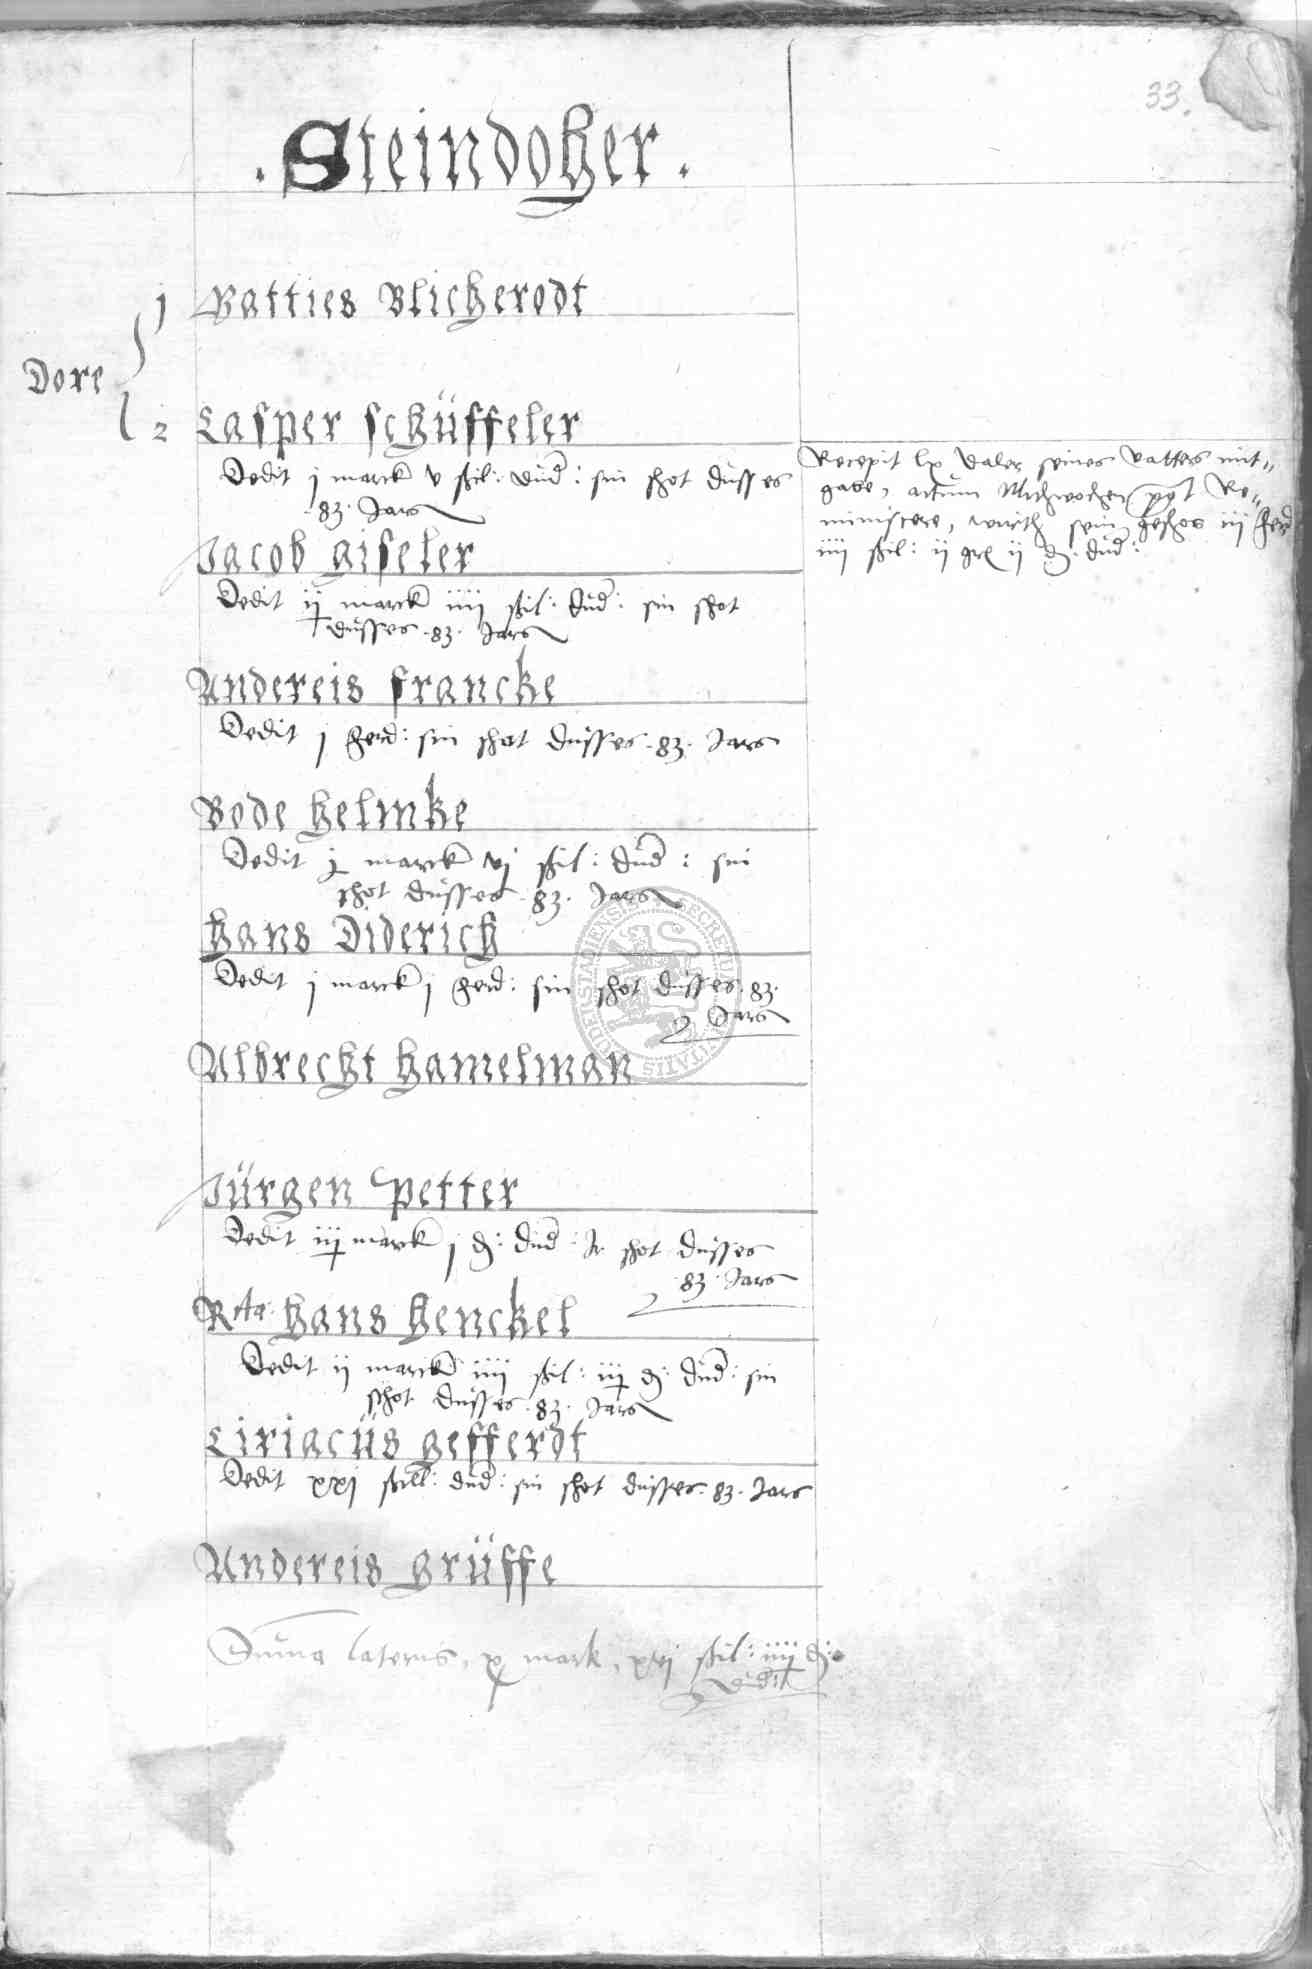 33.
. Steindoher .
1 Batties Blicherodt
Dore
2 Casper schüffeler
Dedit j marck v ßil: düd: sin schot düsses
.83. Jars
Recepit lx daler seines vatters mit-
gave, actum Mithwochen post Re-
miniscere, wirth sein geschos iij ferd
iiij ßil: ij ij d: düd:
Jacob giseler
Dedit ij marck iiij ßil: düd: sin schot
düsses .83. Jars
Andereis francke
Dedit j ferd: sin schot düsses .83. Jars
Bode helmke
Dedit marck vj ßil: düd: sin
schot düsses .83. Jars
hans Diderich
Dedit j marck j ferd: sin schot düsses .83.
Jars
Albrecht hamelman
Jürgen Petter
Dedit marck j d: düd: schot düsses
.83. Jars
Rta hans henckel
Dedit ij marck iiij ßil: d: düd: sin
schot düsses .83. Jars
Ciriacüs gefferdt
Dedit xxj ßill: düd: sin schot düsses .83. Jars
Andereis grüffe
Suma lateris, x mark, xvj ßil: d:
düd:
SECRETUM CIVITATIS DUDERSTADIENSIS